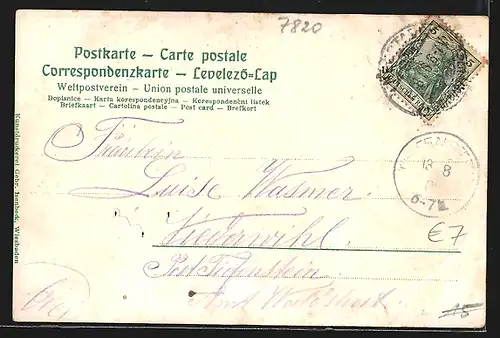 7820
Postkarte – Carte postale
Correspondenzkarte – Levelező-Lap
Weltpostverein – Union postale universelle
Dopisnice – Karta korespondencyjna – Korespondenční lístek
Briefkaart – Cartolina postale – Post card – Brefkort
5 5
Fräulein
Luise Wasmer
Niederwihl
Post Tiefenstein
Amt Waldshut
13 8
6-7
€7
15
Kunstdruckerei Gebr. Wiesbaden